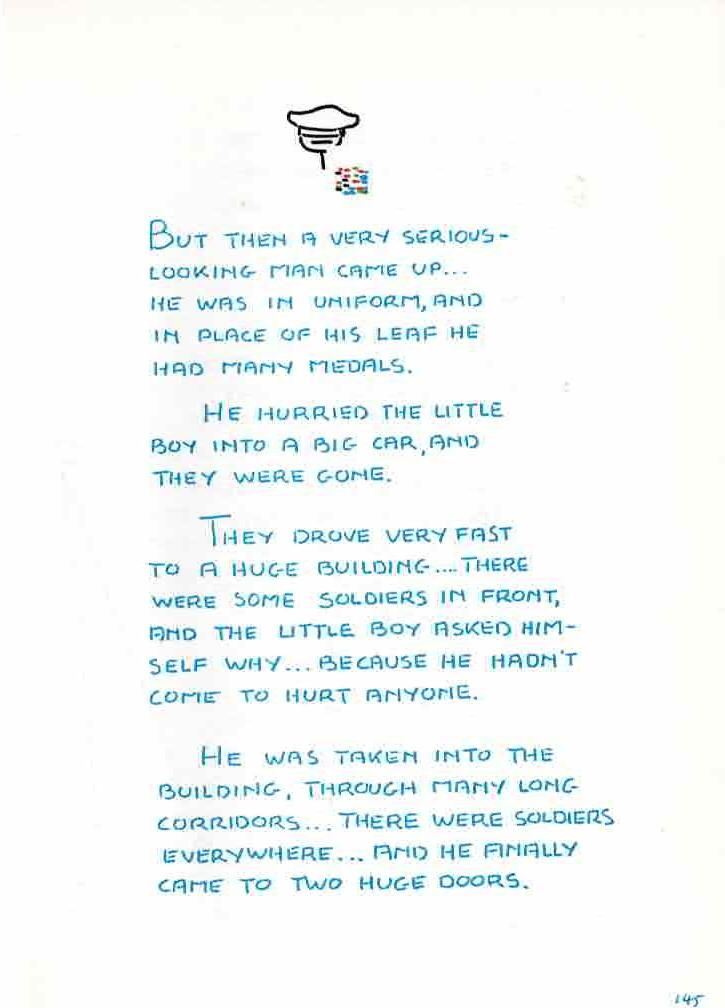 BUT THEN A VERY SERIOUS-
LOOKING MAN CAME UP...
HE WAS IN UNIFORM, AND
IN PLACE OF HIS LEAF HE
HAD MANY MEDALS.
HE HURRIED THE LITTLE
BOY INTO A BIG CAR, AND
THEY WERE GONE.
THEY DROVE VERY FAST
TO A HUGE BUILDING.... THERE
WERE SOME SOLDIERS IN FRONT,
AND THE LITTLE BOY ASKED HIM-
SELF WHY... BECAUSE HE HADN'T
COME TO HURT ANYONE.
HE WAS TAKEN INTO THE
BUILDING, THROUGH MANY LONG
CORRIDORS... THERE WERE SOLDIERS
EVERYWHERE... AND HE FINALLY
CAME TO TWO HUGE DOORS.
145